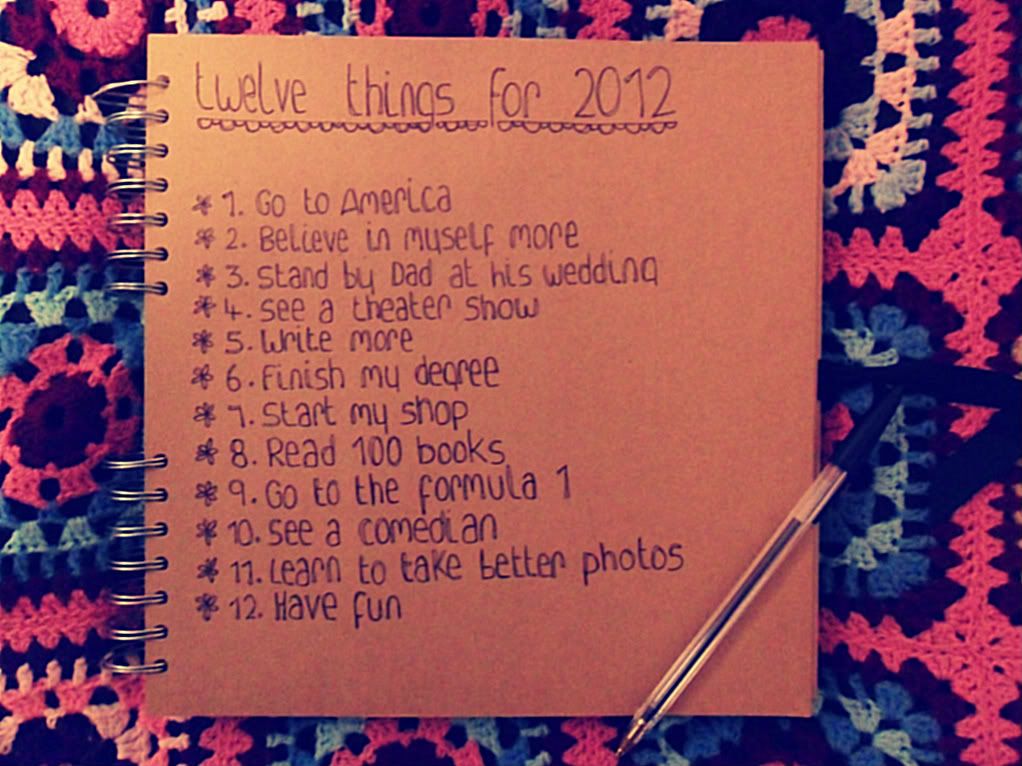 twelve things for 2012
* 1. Go to America
* 2. Believe in myself more
* 3. Stand by Dad at his wedding
* 4. See a theater show
* 5. Write more
* 6. Finish my degree
* 7. Start my shop
* 8. Read 100 books
* 9. Go to the formula 1
* 10. See a comedian
* 11. Learn to take better photos
* 12. Have fun